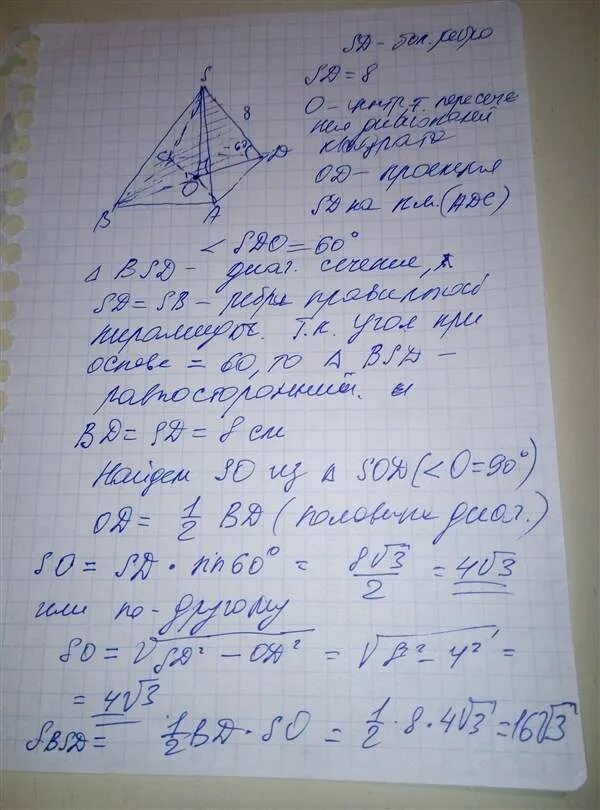 SD - бок. ребро
SD = 8
О - центр, т. пересече
ния диагоналей
квадрата
OD - проекция
SD на пл. (ADC)
S
8
60°
C
D
O
B
A
< SDO = 60°
Δ BSD - диаг. сечение,
SD = SB - ребра правильной
пирамиды. Т.к. угол при
основ = 60, то Δ BSD -
равносторонний. и
BD = SD = 8 см
Найдем SO из Δ SOD (< O = 90°)
OD = 1/2 BD (половина диаг.)
SO = SD · sin 60° = 8√3/2 = 4√3
или по-другому
SO = √SD² - OD² = √8² - 4² =
= 4√3
S BSD = 1/2 BD · SO = 1/2 · 8 · 4√3 = 16√3